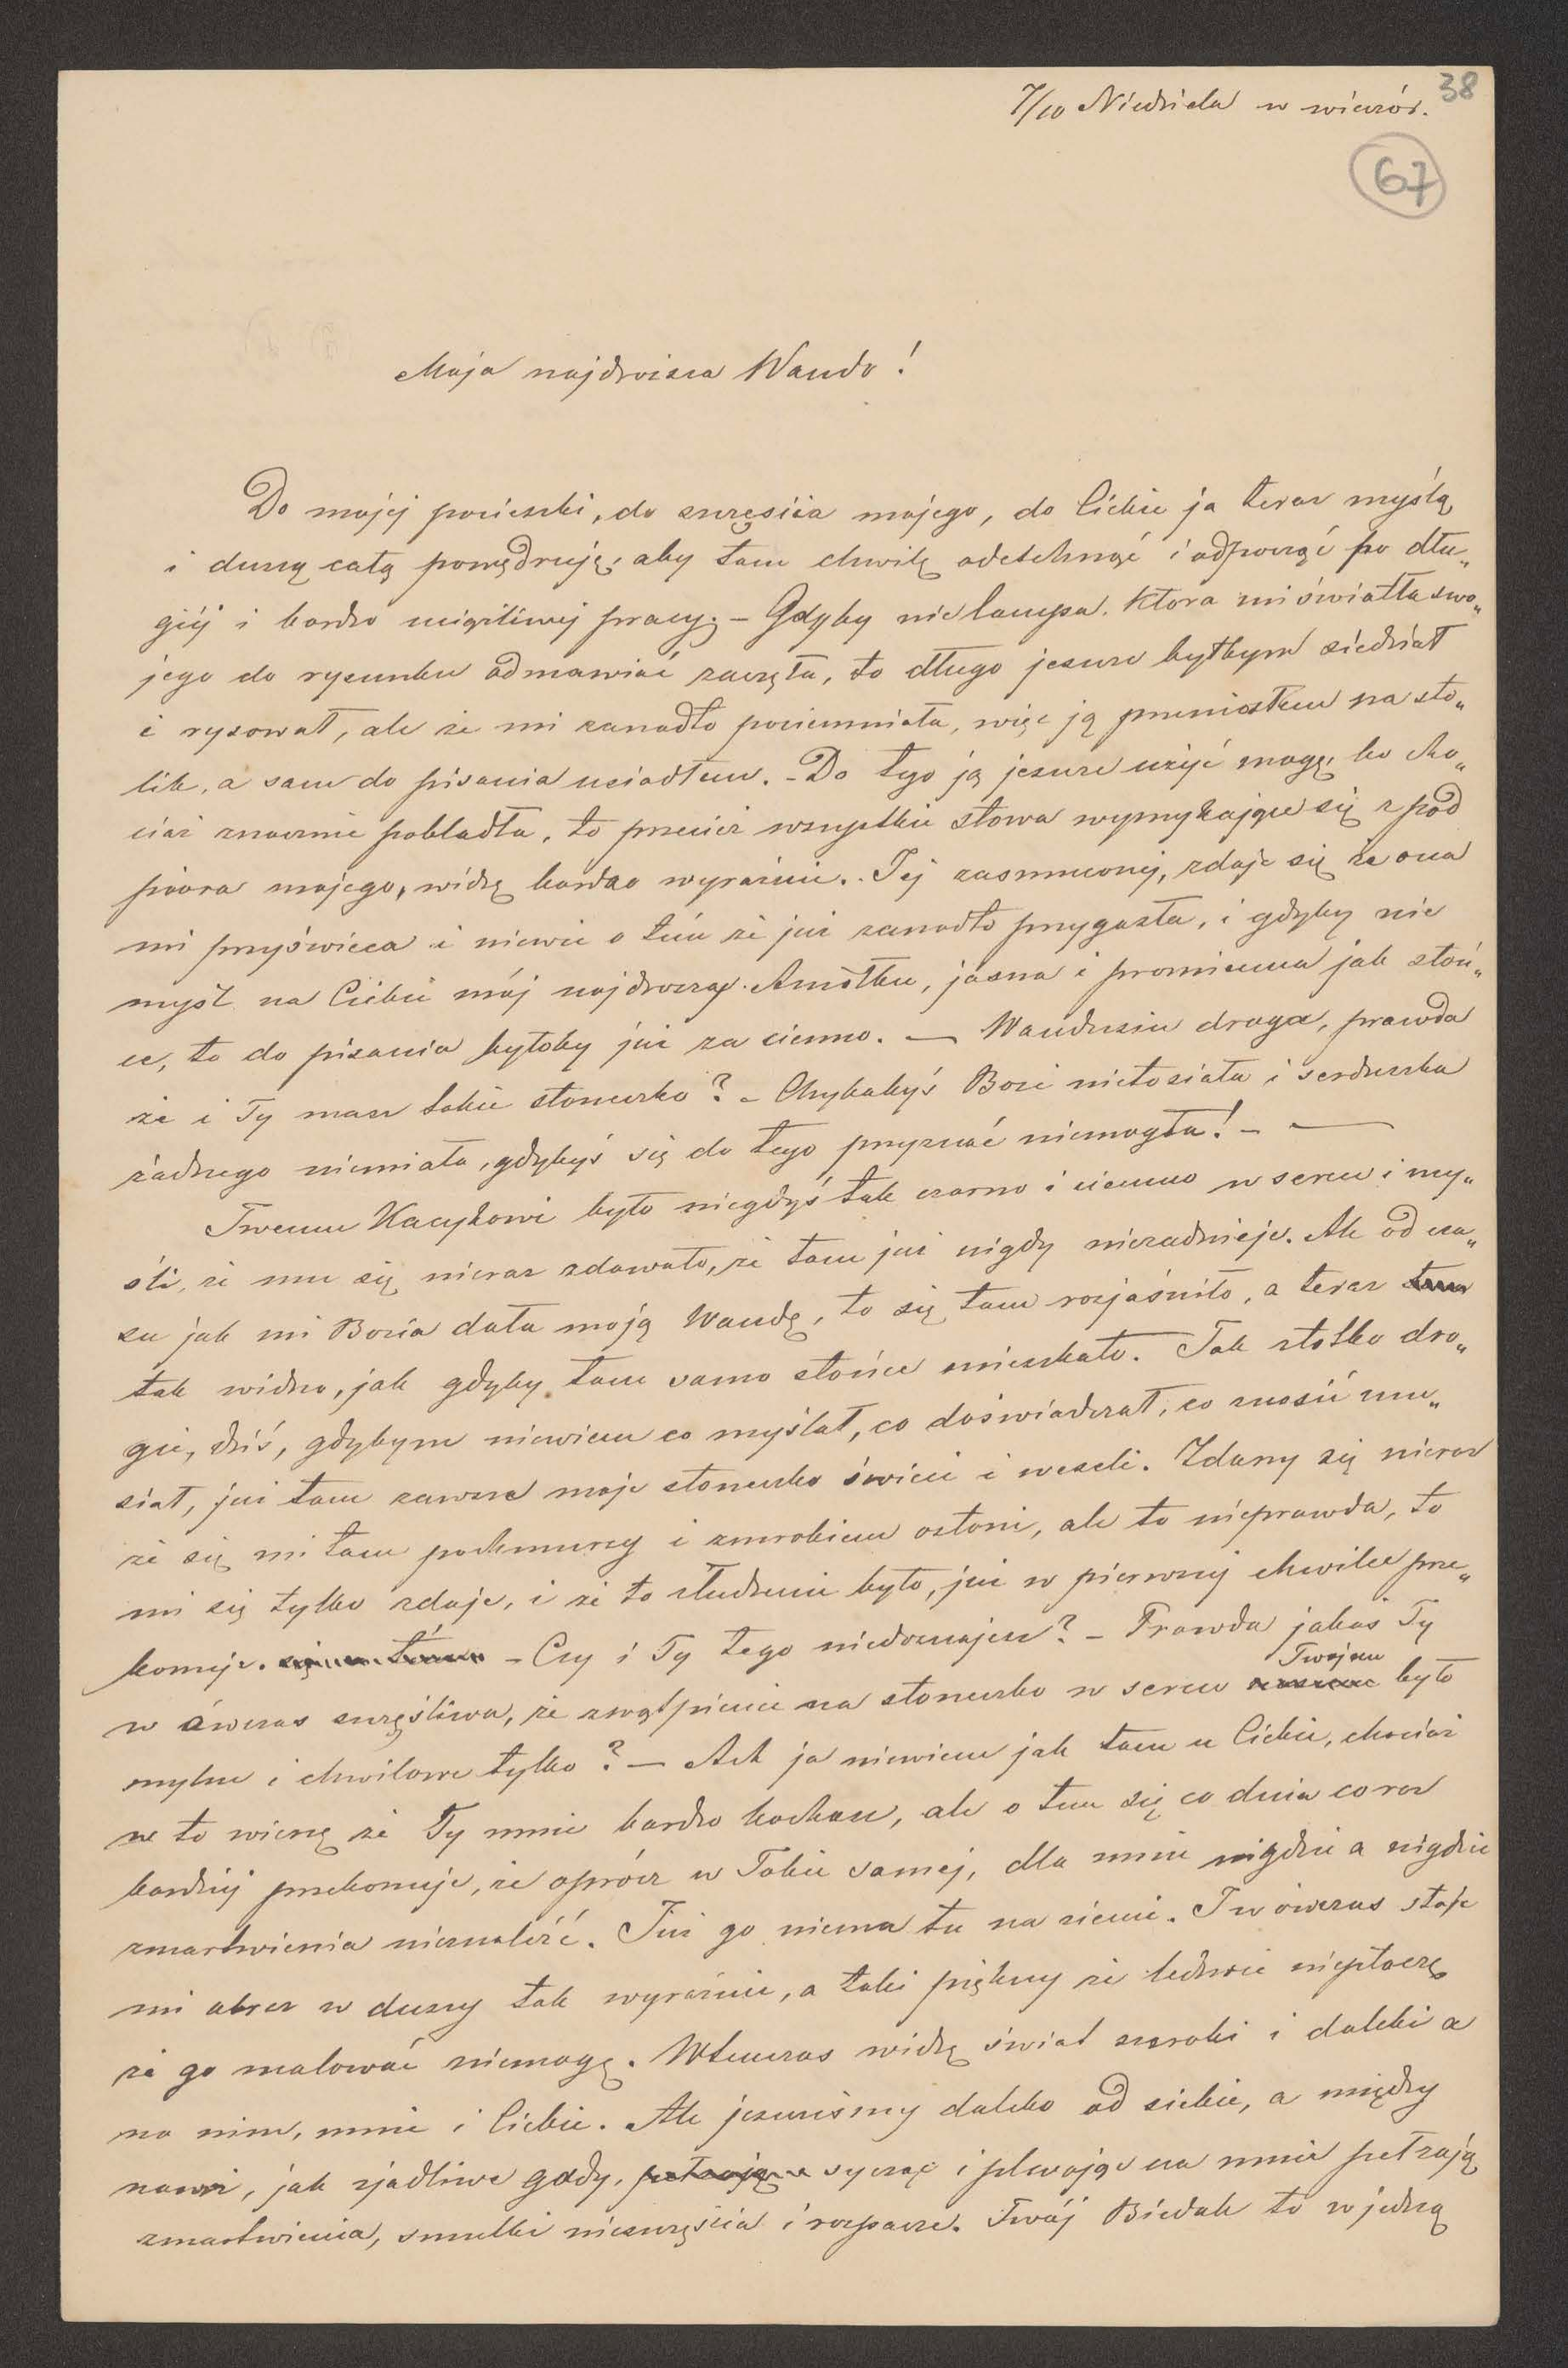 38
7/10 Niedziela w wieczór.
67
Moja najdroższa Wando!
Do mojej pociechy, do szczęścia mojego, do Ciebie ja teraz myślą
i duszą całą powędruję, aby tam chwilę odetchnąć i odpocząć po dłu„
giéj i bardzo uciążliwej pracy. – Gdyby nie lampa, która mi światła swo„
jego do rysunku odmawiać zaczęła, to długo jeszcze byłbym siedział
i rysował, ale że mi zanadto pociemniała, więc ją przeniosłem na sto„
lik, a sam do pisania usiadłem. – Do tego ją jeszcze użyć mogę, bo cho„
ciaż znacznie pobladła, to przecież wszystkie słowa wymykające się z pod
pióra mojego, widzę bardzo wyraźnie. Jej zasmuconej, zdaje się że ona
mi przyświeca i niewie o tém że już zanadto przygasła, i gdyby nie
myśl na Ciebie mój najdroższy Aniołku, jasna i promienna jak słoń„
ce, to do pisania byłoby już za ciemno. — Wandusiu droga, prawda
że i Ty masz takie słoneczko? – Chybabyś Bozi nietosiała i serduszka
żadnego niemiała, gdybyś się do tego przyznać niemogła! – —
Twemu Kacykowi było niegdyś tak czarno i ciemno w sercu i my„
śli, że mu się nieraz zdawało, że tam już nigdy niezadnieje. Ale od cza„
su jak mi Bozia dała moją Wandę, to się tam rozjaśniło, a teraz
tak widno, jak gdyby tam samo słońce mieszkało. Tak złotko dro„
gie, dziś, gdybym niewiem co myślał, co doświadczał, co znosić mu„
siał, już tam zawsze moje słoneczko świeci i weseli. Zdarzy się nieraz
że się mi tam pochmurzy i zmrokiem osłoni, ale to nieprawda, to
mi się tylko zdaje, i że to złudzenie było, już w pierwszej chwilce prze„
konuję. – Czy i Ty tego niedoznajesz? – Prawda jakaś Ty
w ówczas szczęśliwa, że zwątpienie na słoneczko w sercu Twojem było
mylne i chwilowe tylko? — Ach ja niewiem jak tam u Ciebie, chociaż
w to wierzę że Ty mnie bardzo kochasz, ale o tem się co dnia coraz
bardziéj przekonuję, że oprócz w Tobie samej, dla mnie nigdzie a nigdzie
zmartwienia nieznaleźć. Już go niema tu na ziemi. I w ówczas staje
mi obraz w duszy tak wyraźnie, a taki piękny że ledwie niepłaczę
że go malować niemogę. Wtenczas widzę świat szeroki i daleki a
na nim, mnie i Ciebie. Ale jeszcześmy daleko od siebie, a między
nami, jak zjadliwe gady, sycząc i plwając na mnie pełzają
zmartwienia, smutki nieszczęścia i rozpacze. Twój Biedak to w jedną